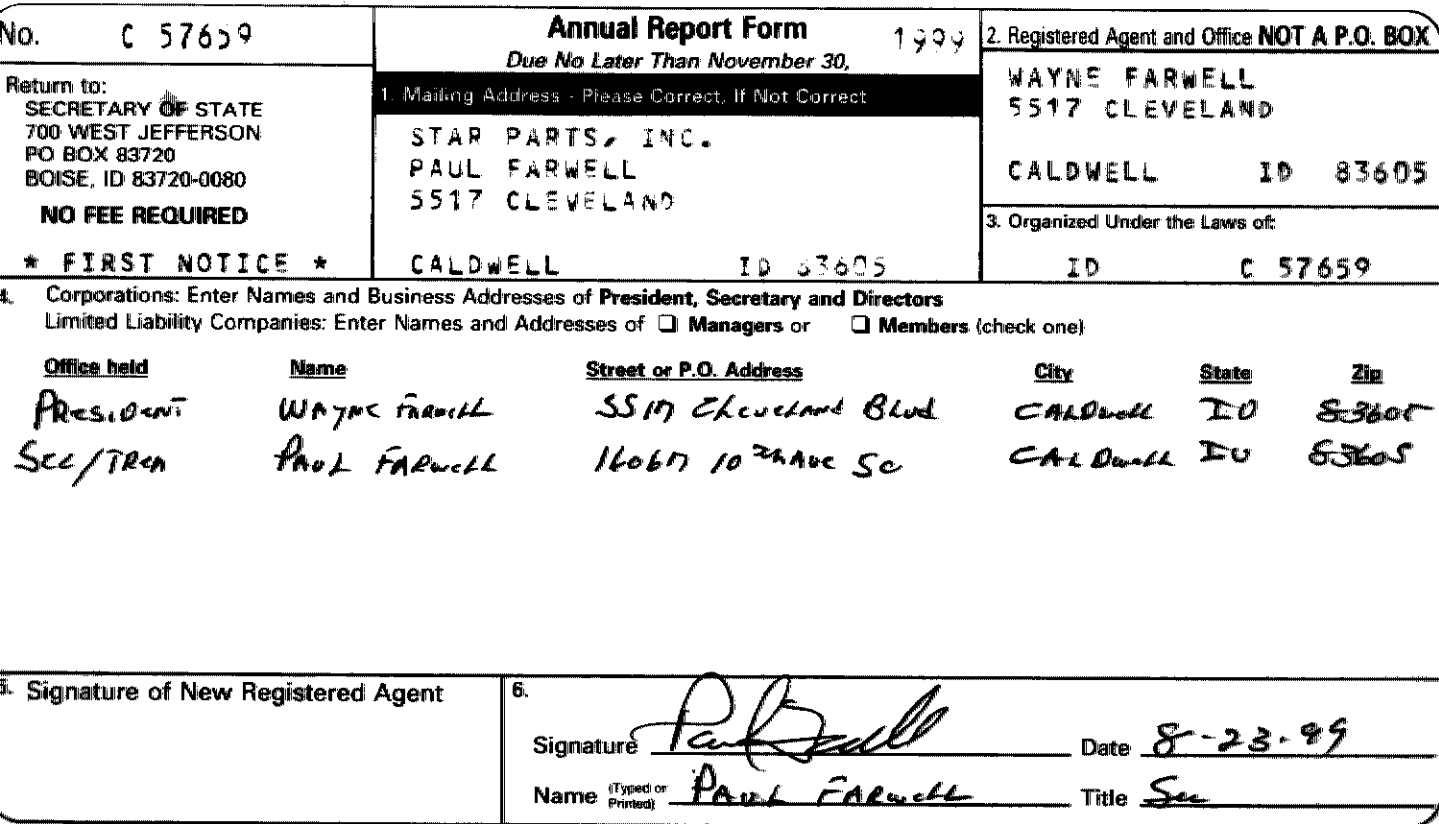 No. C 57659
Annual Report Form 1999
Due No Later Than November 30,
Return to:
SECRETARY OF STATE
700 WEST JEFFERSON
PO BOX 83720
BOISE, ID 83720-0080
NO FEE REQUIRED
* FIRST NOTICE *
1. Mailing Address - Please Correct, If Not Correct
STAR PARTS, INC.
PAUL FARWELL
5517 CLEVELAND
CALDWELL ID 83605
2. Registered Agent and Office NOT A P.O. BOX
WAYNE FARWELL
5517 CLEVELAND
CALDWELL ID 83605
3. Organized Under the Laws of:
ID C 57659
4. Corporations: Enter Names and Business Addresses of President, Secretary and Directors
Limited Liability Companies: Enter Names and Addresses of ☐ Managers or ☐ Members (check one)
Office held Name Street or P.O. Address City State Zip
President Wayne Farwell 5517 Cleveland Blvd Caldwell ID 83605
Sec/Trea Paul Farwell 16067 10th Ave So Caldwell ID 83605
5. Signature of New Registered Agent
6.
Signature Paul Farwell Date 8-23-99
Name (Typed or Printed) Paul Farwell Title Sec